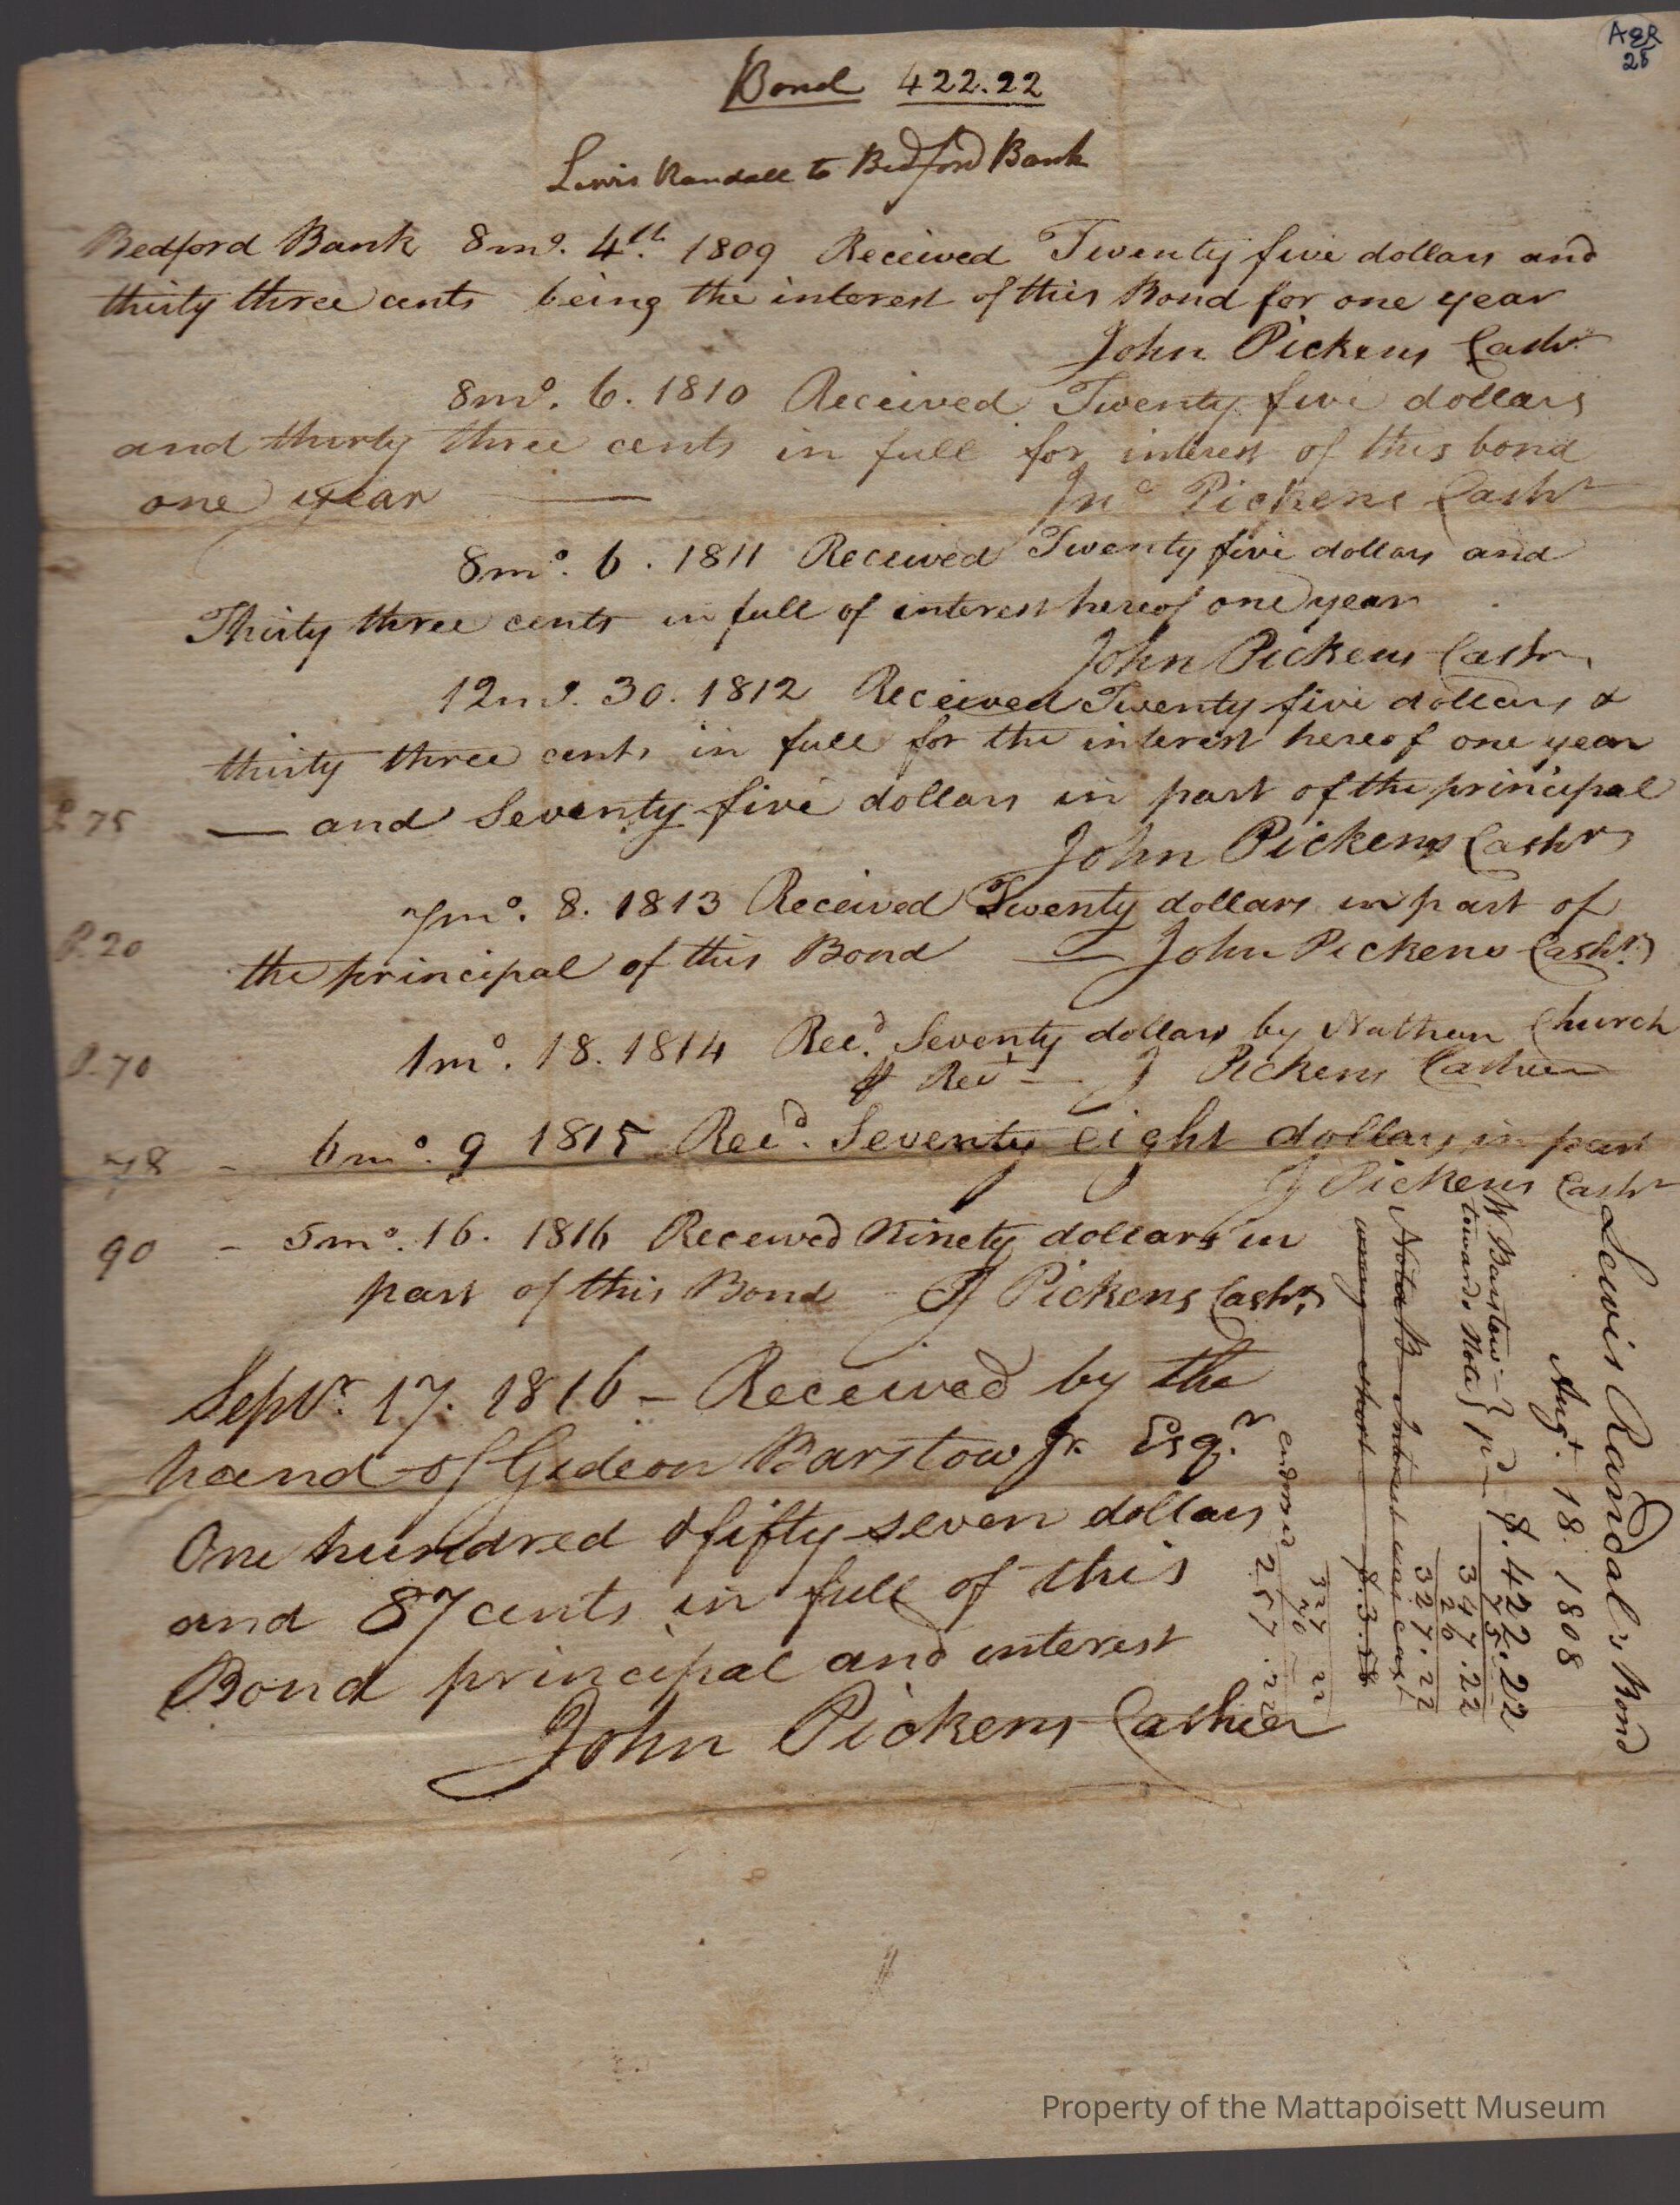 A&R
28
Bond 422.22
Lewis Randall to Bedford Bank
Bedford Bank 8mo. 4th. 1809 Received Twenty five dollars and
thirty three cents being the interest of this Bond for one year
John Pickens Cashr
8mo. 6. 1810 Received Twenty five dollars
and thirty three cents in full for interest of this bond
one year
Jno Pickens Cashr
8mo. 6. 1811 Received Twenty five dollars and
Thirty three cents in full of interest hereof one year
John Pickens Cashr
12mo. 30. 1812 Received Twenty five dollars &
thirty three cents in full for the interest hereof one year
P. 75 — and Seventy five dollars in part of the principal
John Pickens Cashr
7mo. 8. 1813 Received Twenty dollars in part of
P. 20 the principal of this Bond — John Pickens Cashr.
1mo. 18. 1814 Recd. Seventy dollars by Nathan Church
P. 70 Rect — J Pickens Cashier
78 - 6mo. 9 1815 Recd. Seventy eight dollars in part
J Pickens Cashr
90 - 5mo. 16. 1816 Received Ninety dollars in
part of this Bond - J Pickens Cashr.
Septr. 17. 1816 - Received by the
hand of Gideon Barstow Jr. Esqr.
One hundred & fifty seven dollars
and 87 cents in full of this
Bond principal and interest
John Pickens Cashier
Lewis Randal's Bond
Augt. 18. 1808
W Barstow - } pd — $.422.22
towards Note } 75
347.22
20
Nota B - Interest was cast 327.22
wrong - short — $.3.58
327 22
70
endorsed 257.22
Property of the Mattapoisett Museum